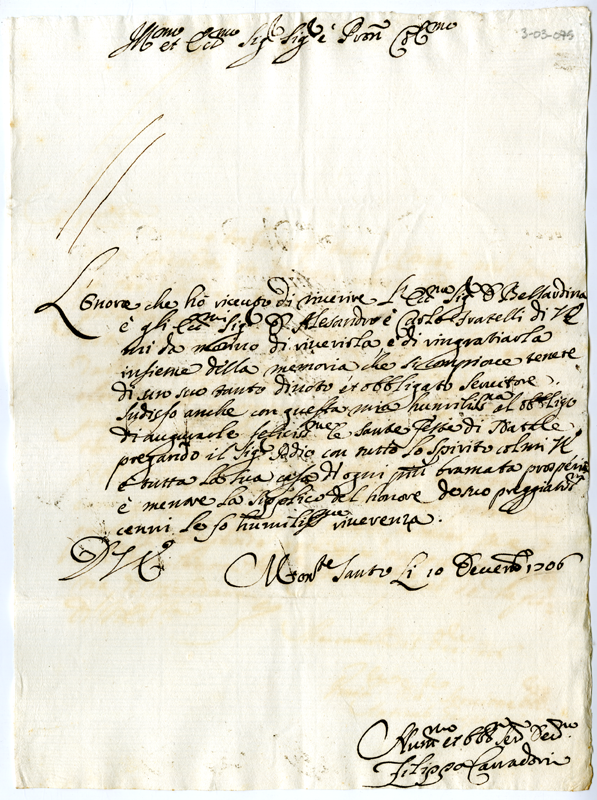 3-03-095
Ill.mo et Ecc.mo Sig.r Sig.r è Pron Col.mo
L'onore che ho riceuto di riverire l'Ecc.ma Sig.ra D. Bernardina
è gli Ecc.mi Sig.ri D. Alesandro è Carlo fratelli di V.E.
mi dà motivo di riverirla è di ringratiarla
insieme della memoria che si compiace tenere
di un suo tanto divoto et obbligato servitore.
sudisfo anche con questa mia humiliss.ma al obbligo
di augurarle feliciss.me le sante feste di Natale
pregando il Sig.r Iddio con tutto lo spirito colmi V.E.
è tutta la sua casa di ogni più bramata prosperità
è mentre la supplico del honore de suoi preggiatis.mi
cenni le fo humiliss.ma riverenza.
D V.E.
Mon.te Santo li 10 Decem.re 1706
Hum.mo et obb.mo ser.re Dev.mo
Filippo